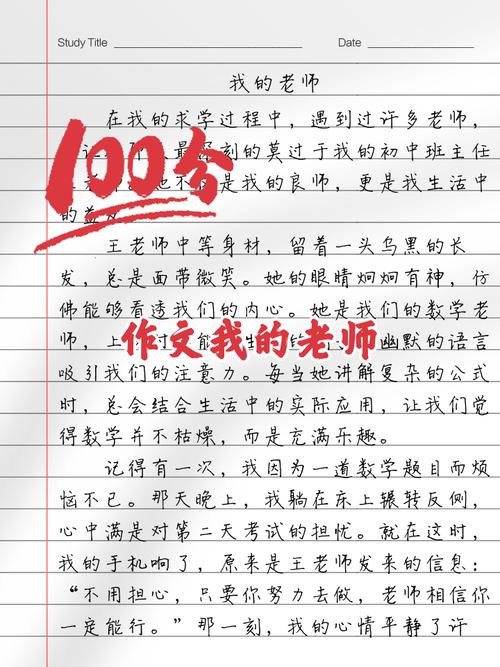 Study Title
Date
我的老师
在我的求学过程中，遇到过许多老师，
让 最深刻的莫过于我的初中班主任
是我的良师，更是我生活中
的益友
100分
王老师中等身材，留着一头乌黑的长
发，总是面带微笑。她的眼睛炯炯有神，仿
佛能够看透我们的内心。她是我们的数学老
师，上 幽默的语言
作文我的老师
吸引我们的注意力。每当她讲解复杂的公式
时，总会结合生活中的实际应用，让我们觉
得数学并不枯燥，而是充满乐趣。
记得有一次，我因为一道数学题目而烦
恼不已。那天晚上，我躺在床上辗转反侧，
心中满是对第二天考试的担忧。就在这时，
我的手机响了，原来是王老师发来的信息：
“不用担心，只要你努力去做，老师相信你
一定能行。”那一刻，我的心情平静了许